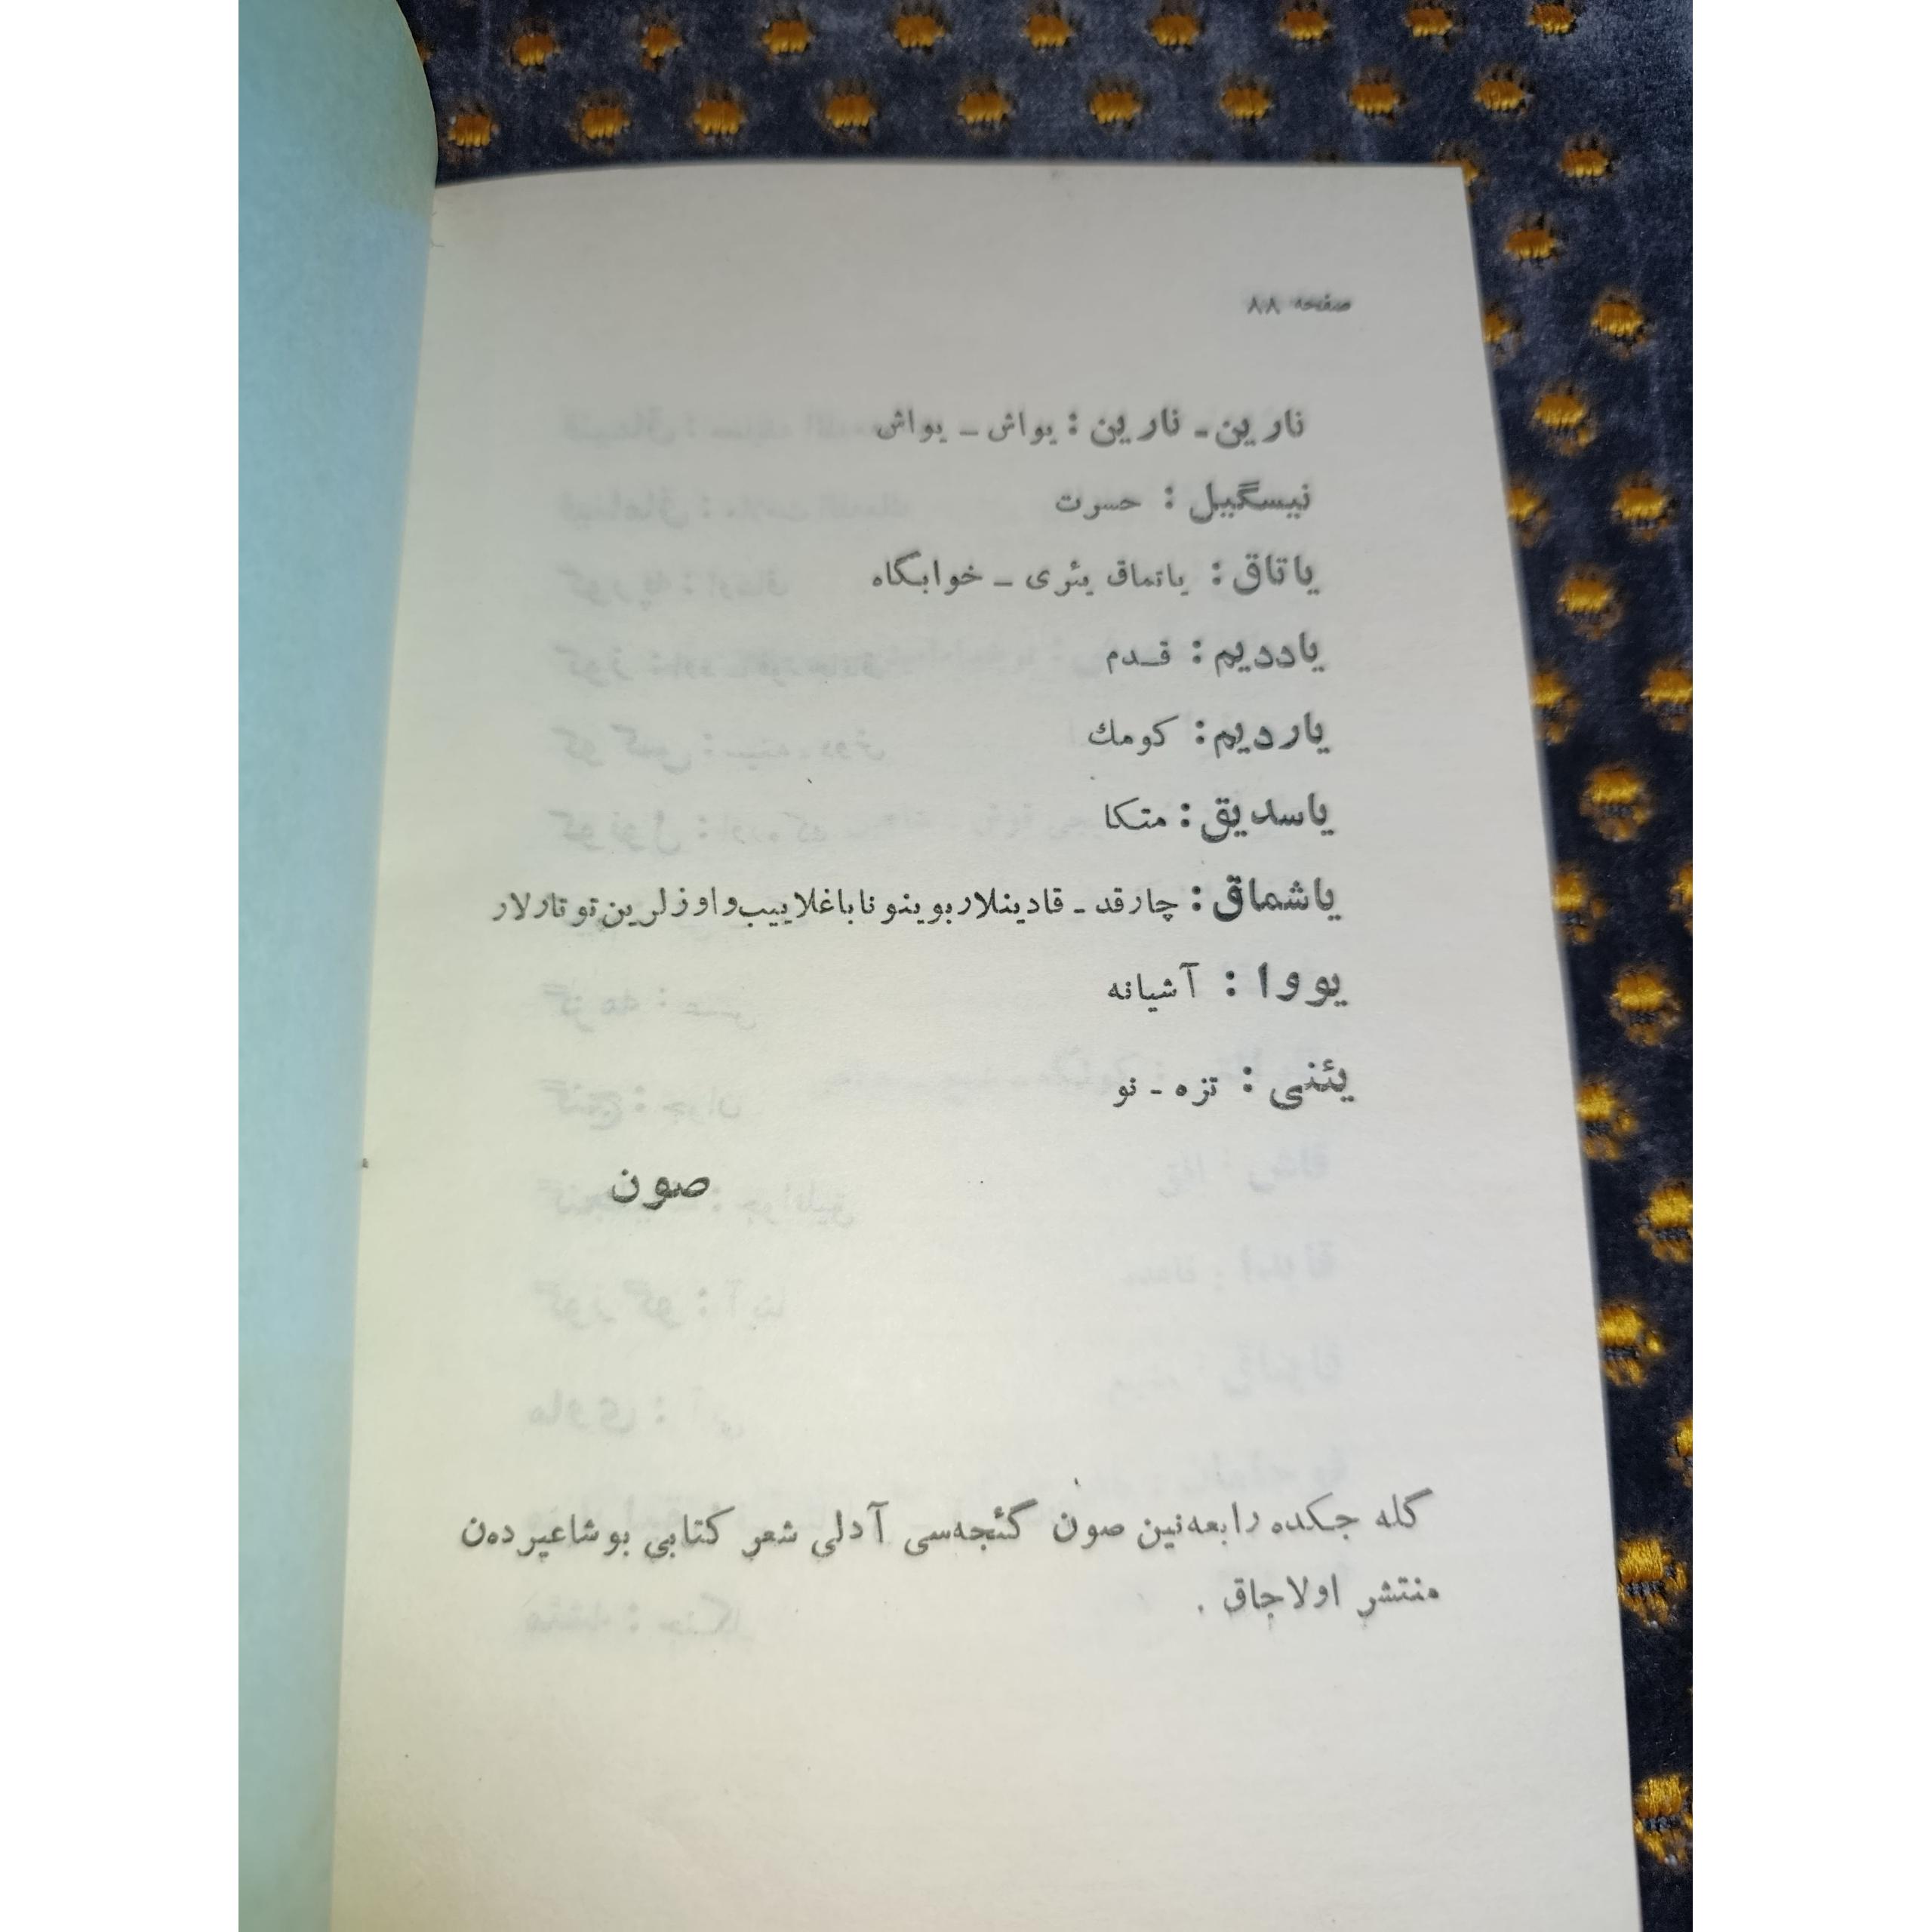 صفحه ۸۸
نارین ـ نارین : یواش ـ یواش
نیسگیل : حسرت
یاتاق : یاتماق یئری ـ خوابگاه
یاددیم : قدم
یاردیم : کومك
یاسدیق : متکا
یاشماق : چارقد ـ قادینلار بوینونا باغلاییب و اوزلرین توتارلار
یووا : آشیانه
یئنی : تزه ـ نو
صون
گله جکده رابعه‌نین صون گئجه‌سی آدلی شعر کتابی بو شاعیرده‌ن
منتشر اولاجاق .